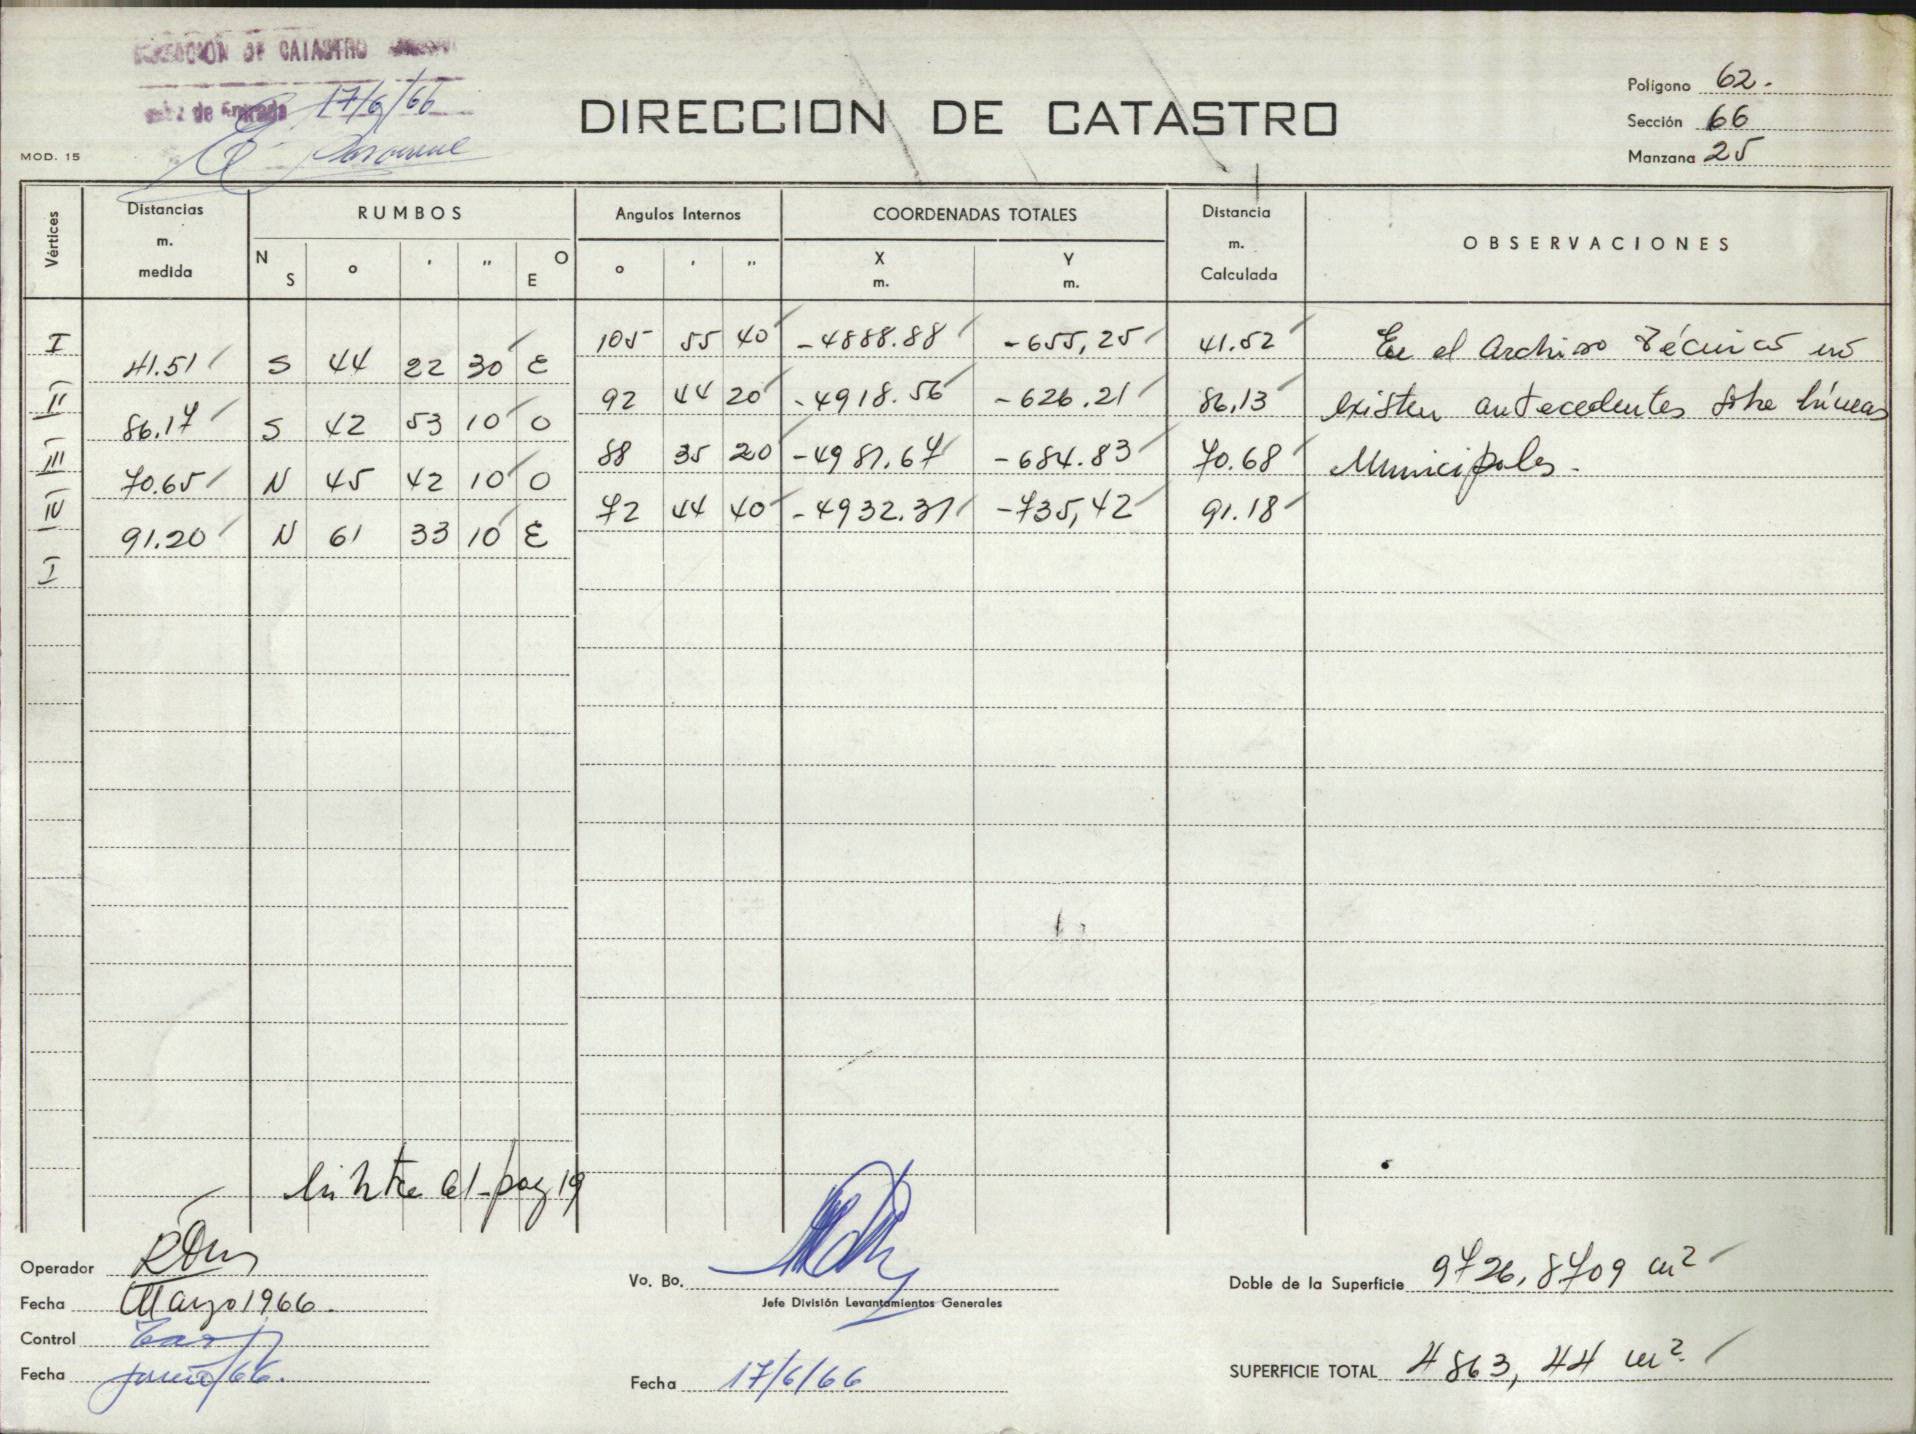 DIRECCION DE CATASTRO
de Entrada 17/6/66
MOD. 15
DIRECCION DE CATASTRO
Polígono 62.
Sección 66
Manzana 25
Vértices
Distancias m. medida
RUMBOS
N S ° ' " O E
Angulos Internos
° ' "
COORDENADAS TOTALES
X m. Y m.
Distancia m. Calculada
OBSERVACIONES
I 105 55 40 -4888.88 -655,25 41.52 En el Archivo Técnico no
41.51 S 44 22 30 E
II 92 44 20 -4918.56 -626.21 86,13 existen antecedentes sobre líneas
86.17 S 42 53 10 O
III 88 35 20 -4981.67 -684.83 70.68 Municipales.
70.65 N 45 42 10 O
IV 72 44 40 -4932.31 -735,42 91.18
91.20 N 61 33 10 E
I
pag 19
Operador
Fecha Marzo 1966.
Control
Fecha junio/66.
Vo. Bo.
Jefe División Levantamientos Generales
Fecha 17/6/66
Doble de la Superficie 9726,8709 m²
SUPERFICIE TOTAL 4863,44 m².